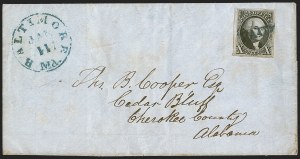 BALTIMORE
JAN
11
Md.
Ths. B. Cooper Esq
Cedar Bluff
Cherokee County
Alabama
X X